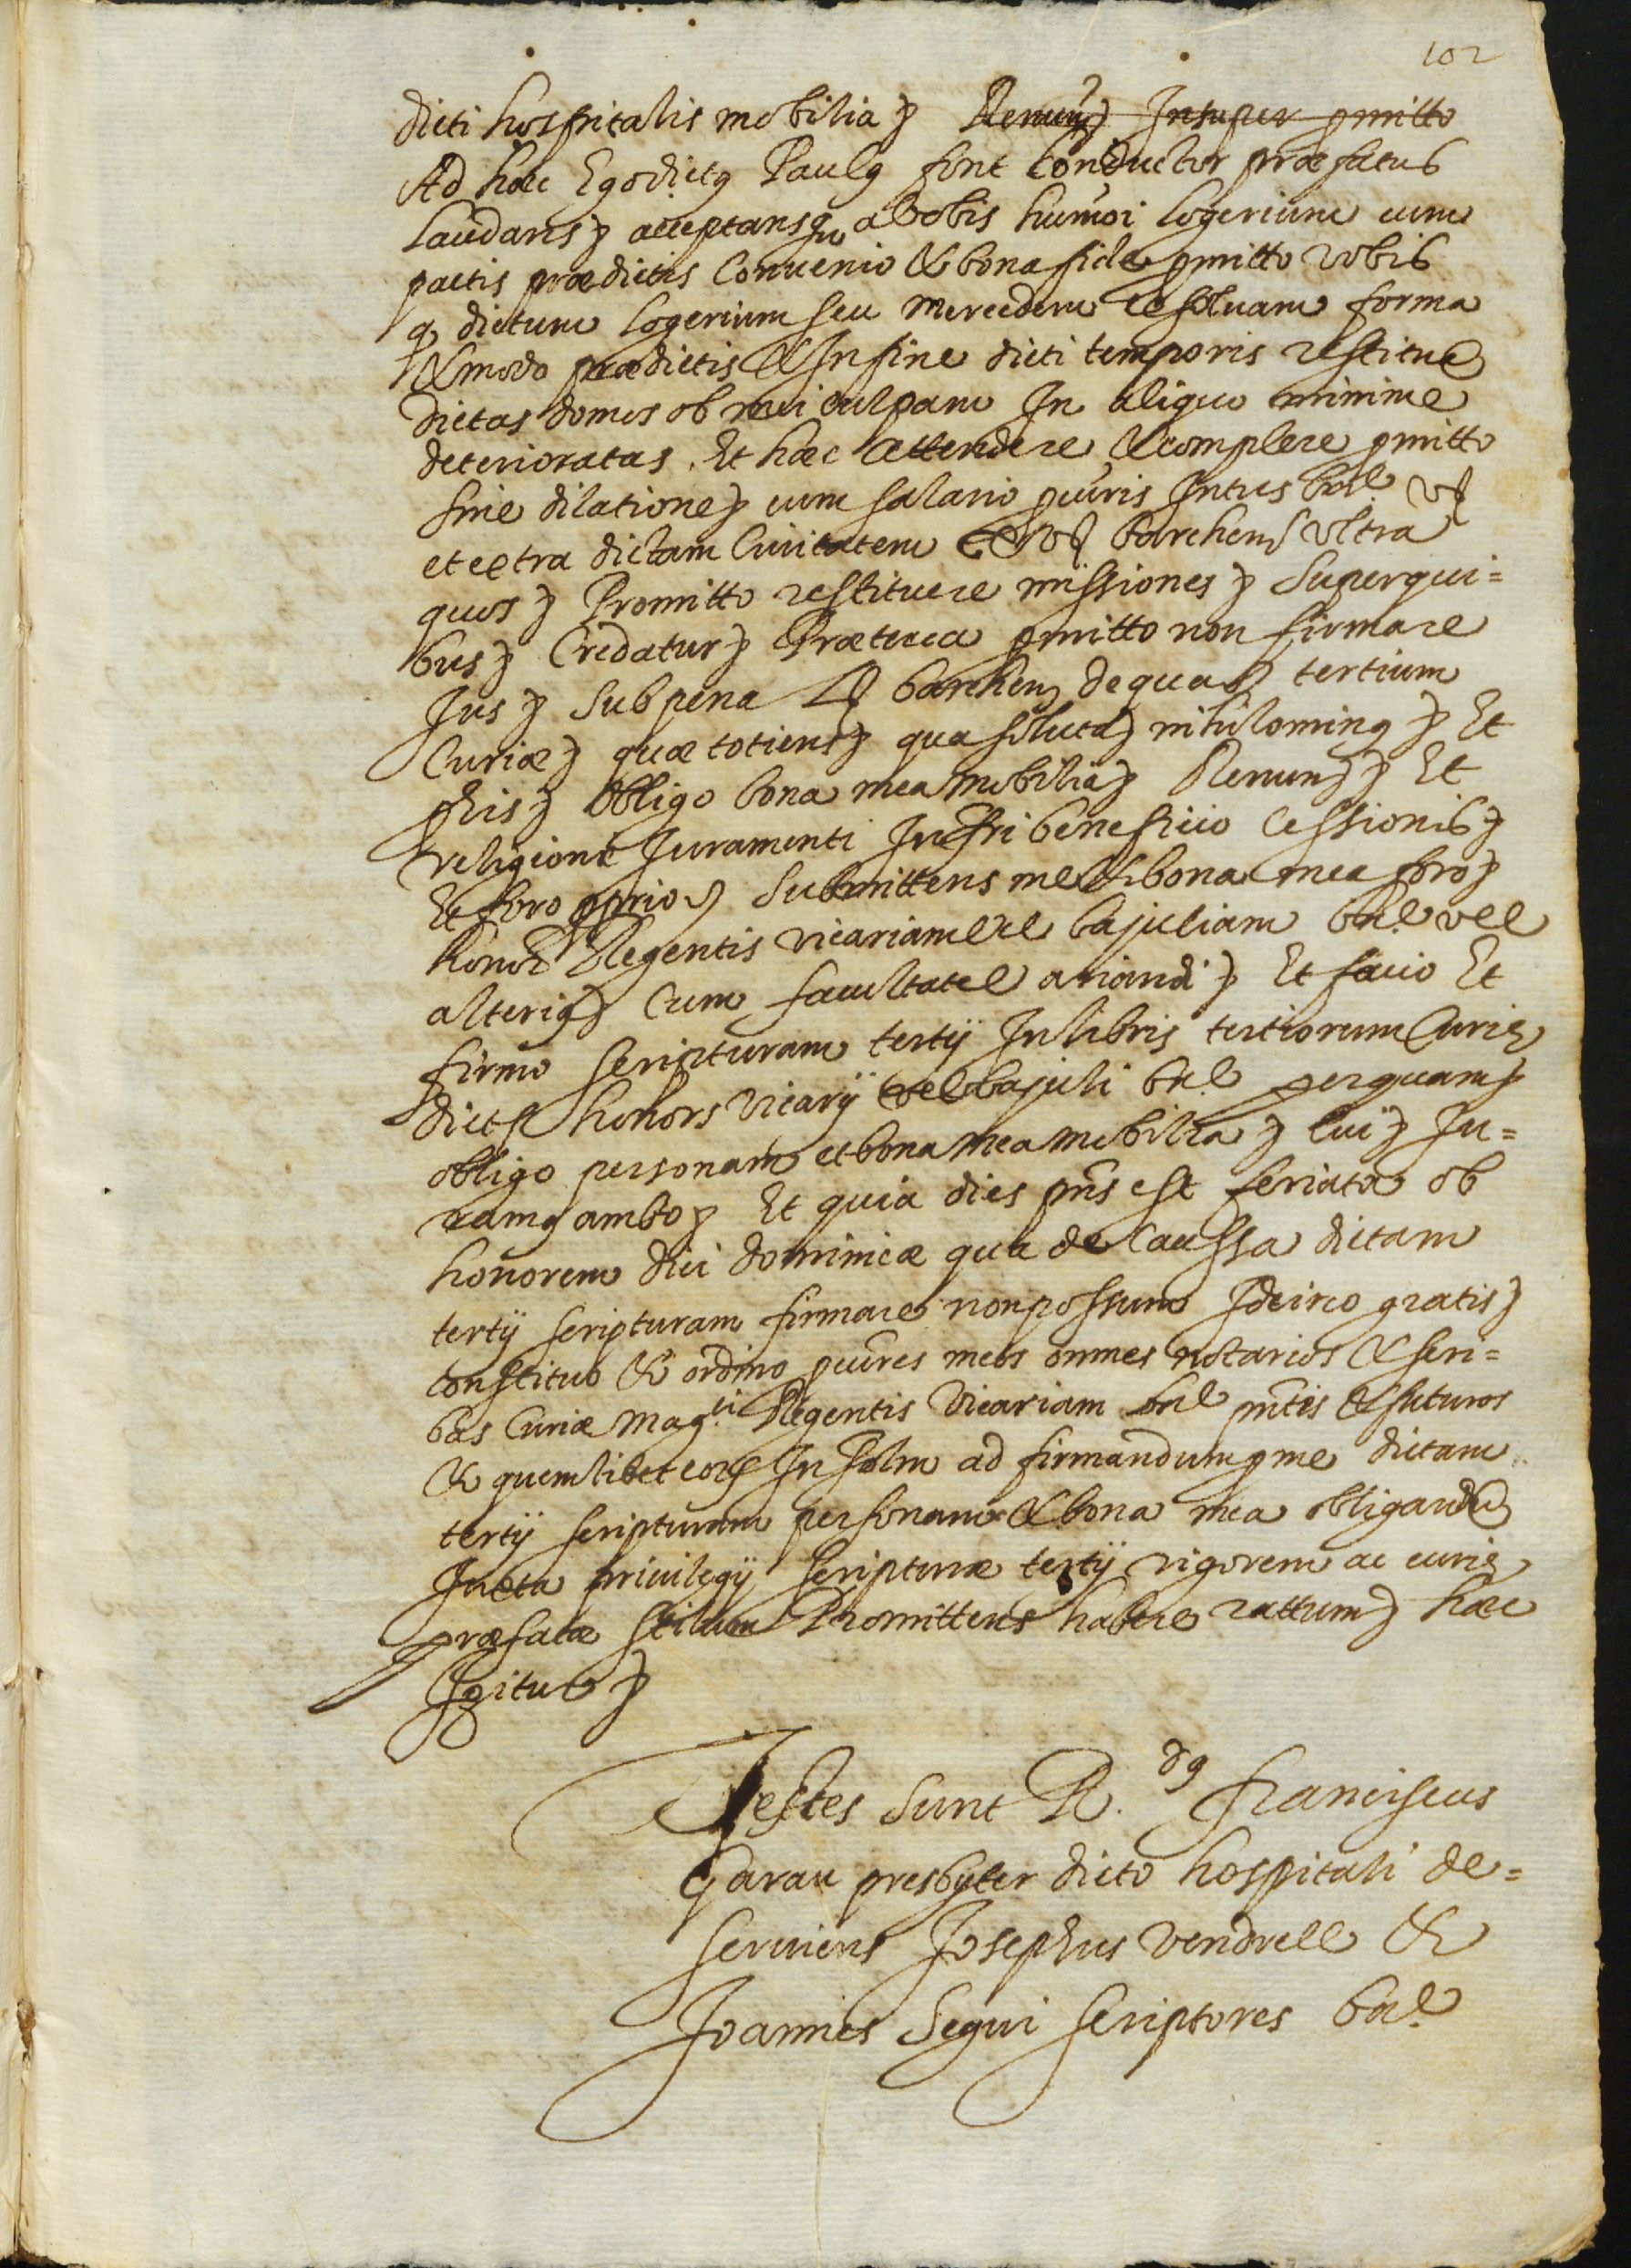 102
dicti hospitalis mobilia Renun Insuper pmitto
Ad haec Ego dictq Paulq font Conductor praefatus
laudans acceptansq a vobis humoi logerium cum
pactis praedictis Convenio & bona fide pmitto vobis
q dictum logerium seu mercedem solvam forma
& modo praedictis & In fine dicti temporis restitue
dictas domos ob mei culpam In aliquo minime
deterioratas. Et haec attendere & complere pmitto
sine dilatione cum salario pcuris Intus bnē v ſ
et extra dictam Civitatem x ſ barchen ultra
quos Promitto restituere missiones Super qui=
bus Credatur Praeterea pmitto non firmare
Jus sub pena barchen de qua tertium
Curiae quae totiens qua soluta nihilominq Et
pro his obligo bona mea mobilia Renun Et
religione Juramenti beneficio Cessionis
Et foro pprio Submittens me & bona mea foro
honor Regentis vicariam vel bajuliam bnē vel
alteriq Cum facultate variandi Et facio Et
firmo scripturam tertij In libris tertiorum Curiae
dictor honors vicarij vel bajuli bnē per quam
obligo personam et bona mea mobilia cui Ju=
ramq ambo Et quia dies pns est feriata ob
honorem diei dominicae qua de Caussa dictam
tertij scripturam firmare non possum Idcirco gratis
Constituo & ordino pcures meos omnes notarios & scri=
bas Curiae mag.ci Regentis Vicariam bnē pntes & futuros
& quemlibet eor In solm ad firmandum p me dictam
tertij scripturam personam & bona mea obligandū
Juxta privilegij scripturae tertij rigorem ac curiae
praefatae stilum Promittens habere rattum haec
Igitur
Testes sunt R.dq Franciscus
Garau presbyter dicto hospitali de=
serviens Josephus Vendrell &
Joannes Segui scriptores bnē